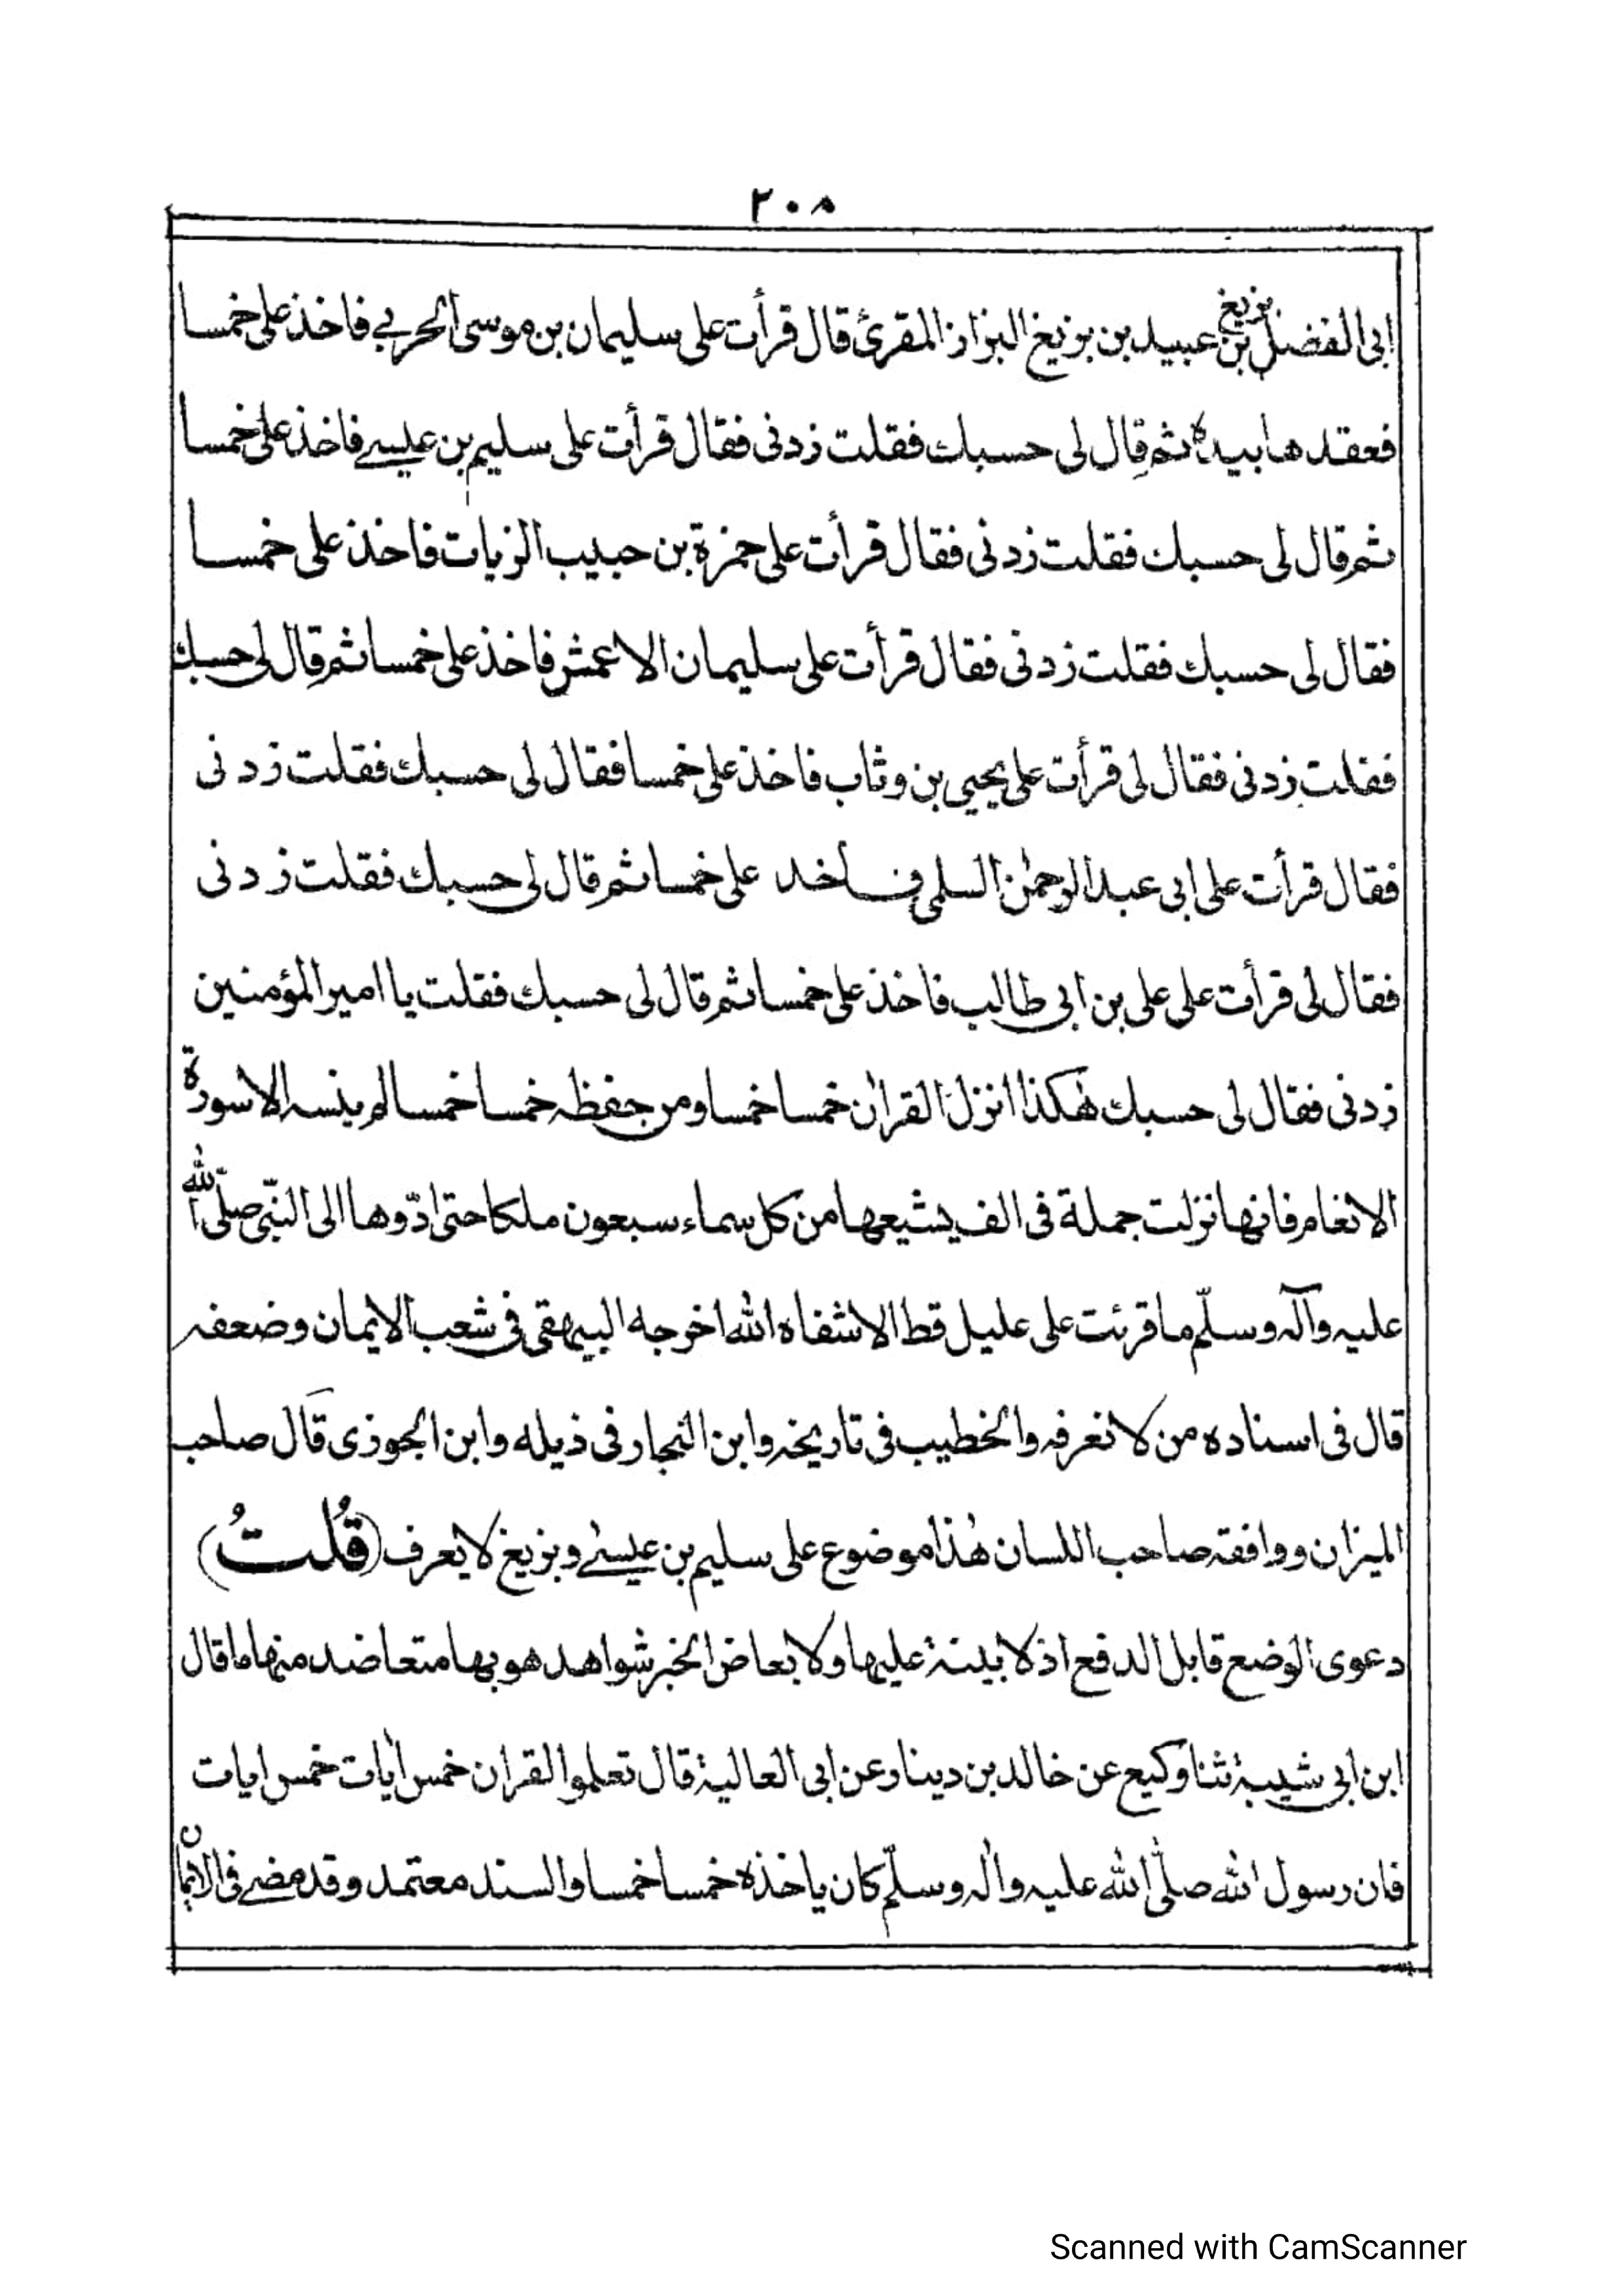 ٢٠٨
ابى الفضل بن بزيغ بن عبيد بن بزيغ البزاز المقرئ قال قرأت على سليمان بن موسى الحربي فاخذ على خمسا
فعقدها بيده ثم قال لى حسبك فقلت زدنى فقال قرأت على سليم بن عيسى فاخذ على خمسا
ثم قال لى حسبك فقلت زدنى فقال قرأت على حمزة بن حبيب الزيات فاخذ على خمسا
فقال لى حسبك فقلت زدنى فقال قرأت على سليمان الاعمش فاخذ على خمسا ثم قال لى حسبك
فقلت زدنى فقال لى قرأت على يحيى بن وثاب فاخذ على خمسا فقال لى حسبك فقلت زدنى
فقال قرأت على ابى عبد الرحمٰن السلمى فاخذ على خمسا ثم قال لى حسبك فقلت زدنى
فقال لى قرأت على على بن ابى طالب فاخذ على خمسا ثم قال لى حسبك فقلت يا امير المؤمنين
زدنى فقال لى حسبك هٰكذا انزل القراٰن خمسا خمسا ومن حفظه خمسا خمسا لم ينسه الا سورة
الانعام فانها نزلت جملة فى الف يشيعها من كل سماء سبعون ملكا حتى ادّوها الى النبّى صلّى الله
عليه وآله وسلّم ما قرئت على عليل قط الا شفاه الله اخرجه البيهقى فى شعب الايمان وضعفه
قال فى اسناده من لا نعرفه والخطيب فى تاريخه وابن النجار فى ذيله وابن الجوزى قال صاحب
الميزان ووافقه صاحب اللسان هٰذا موضوع على سليم بن عيسىٰ وبزيغ لا يعرف (قُلتُ)
دعوى الوضع قابل الدفع اذ لا بينة عليها ولا يعاض الخبر شواهد هو بها متعاضد منها ما قال
ابن ابى شيبة ثنا وكيع عن خالد بن دينار عن ابى العالية قال تعلموا القراٰن خمس اٰيات خمس ايات
فان رسول الله صلّى الله عليه واٰله وسلّم كان ياخذه خمسا خمسا والسند معتمد وقد مضى فى الايمان
Scanned with CamScanner